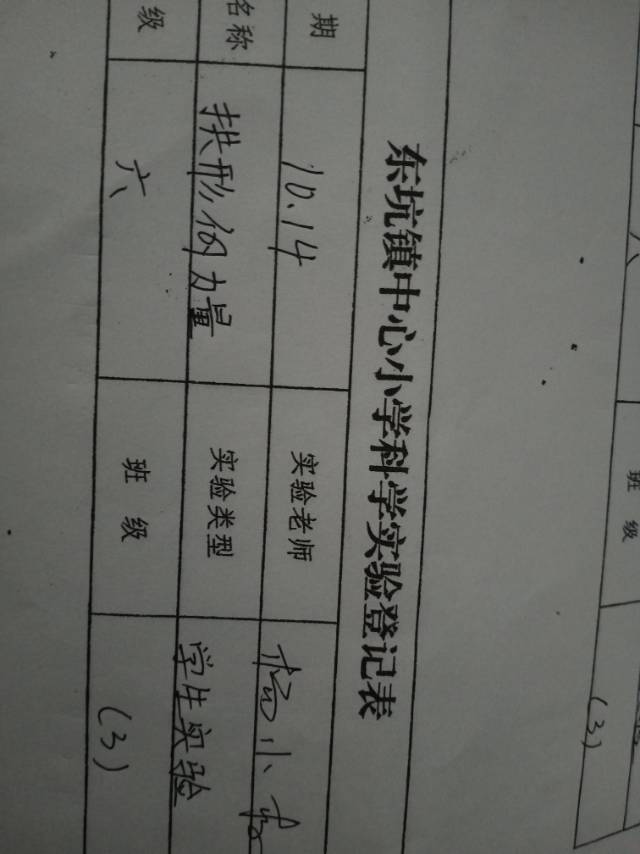 东坑镇中心小学科学实验登记表
期 10.14 实验老师 杨小
名称 拱形的力量 实验类型 学生实验
级 六 班 级 (3)
班 级 (3)